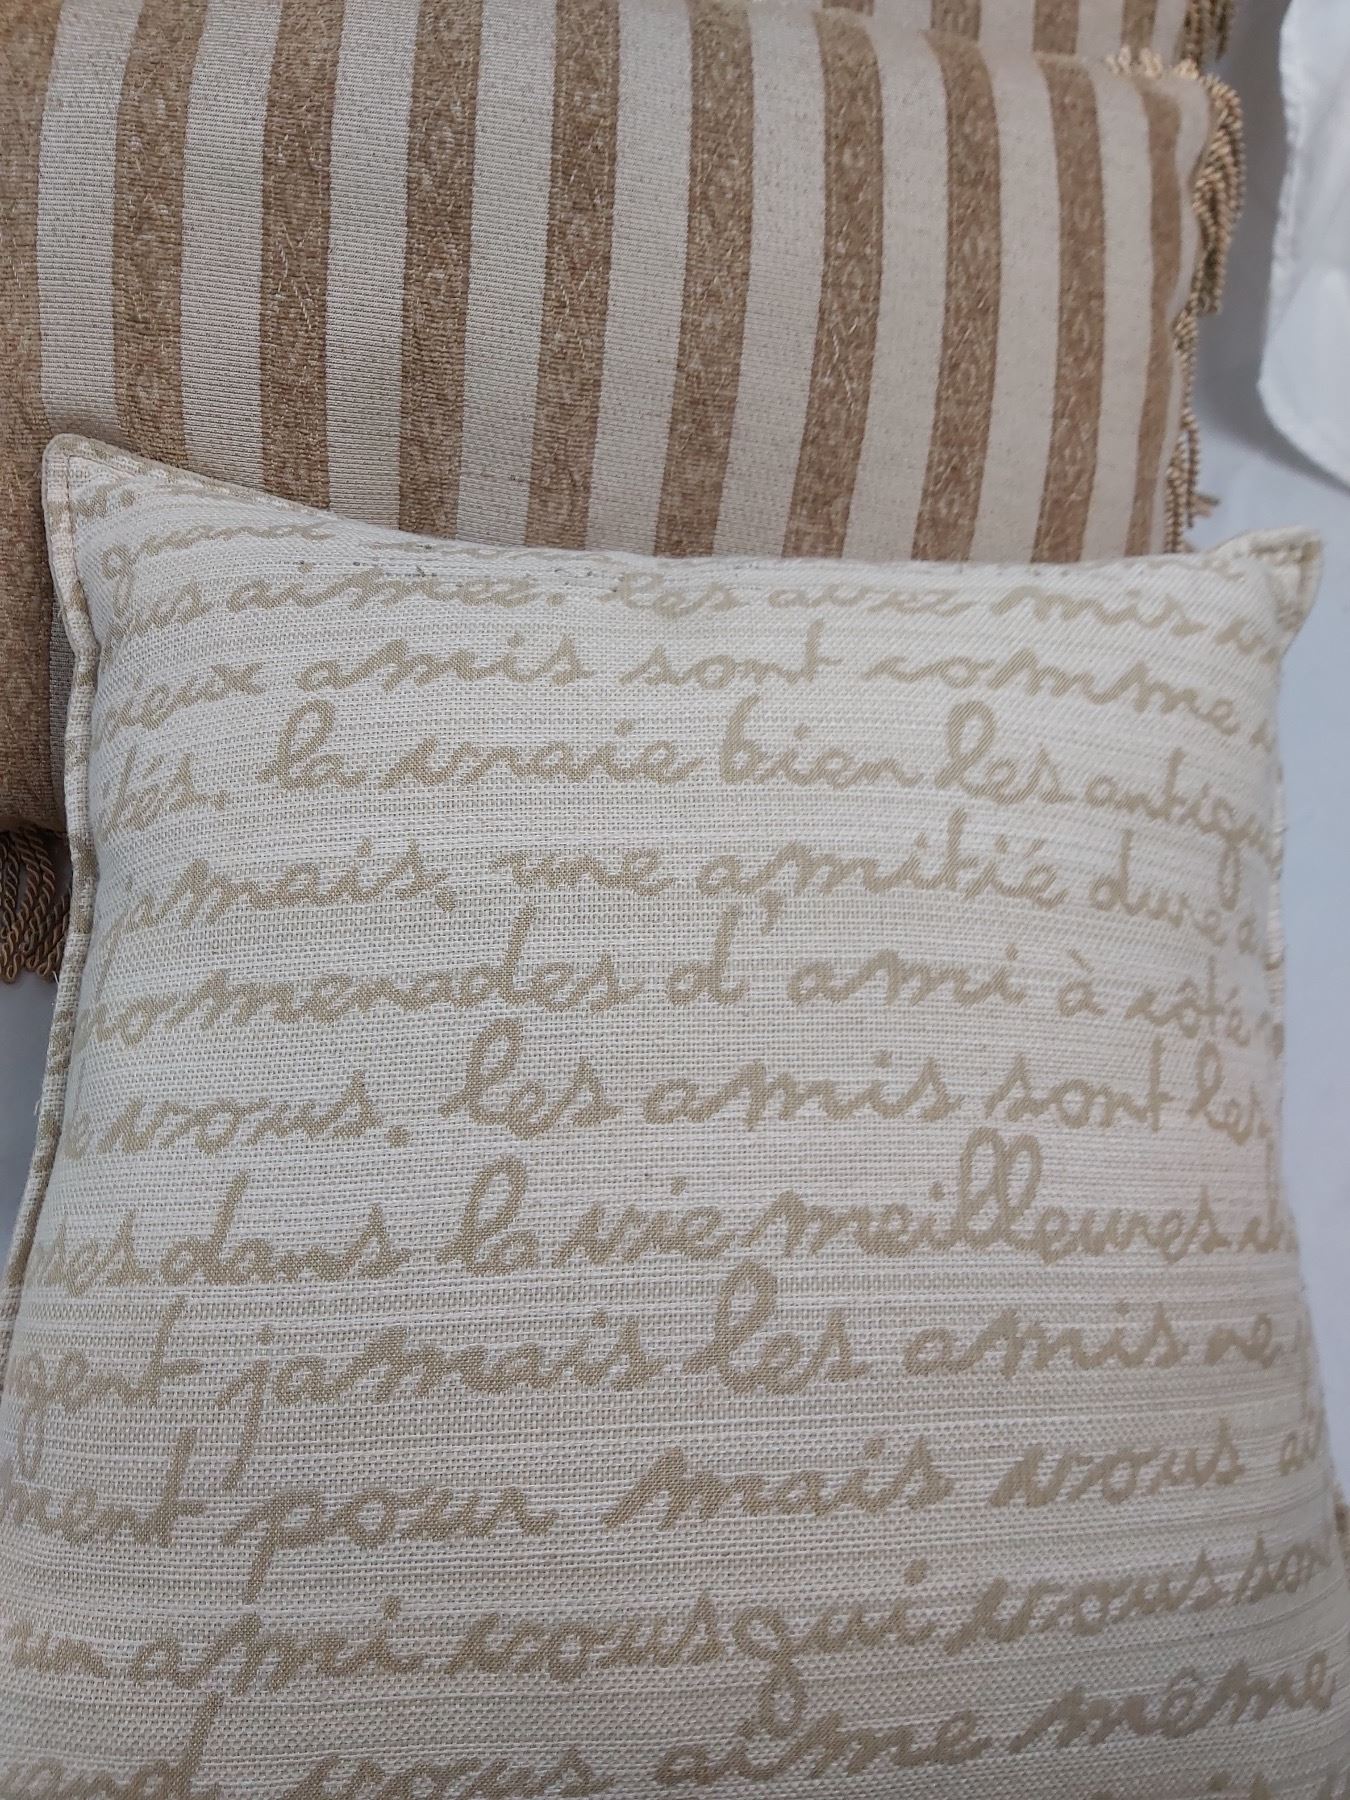 quand
vos aimez. les avez mis
vieux amis sont comme
la vraie bien les antiqu
jamais. une amitié dure a
promenades d'ami à côté
de vous. les amis sont les
ses dans la vie meilleures ch
gent jamais les amis ne
ment pour mais vous ai
un ami vous qui vous son
and vous aime même